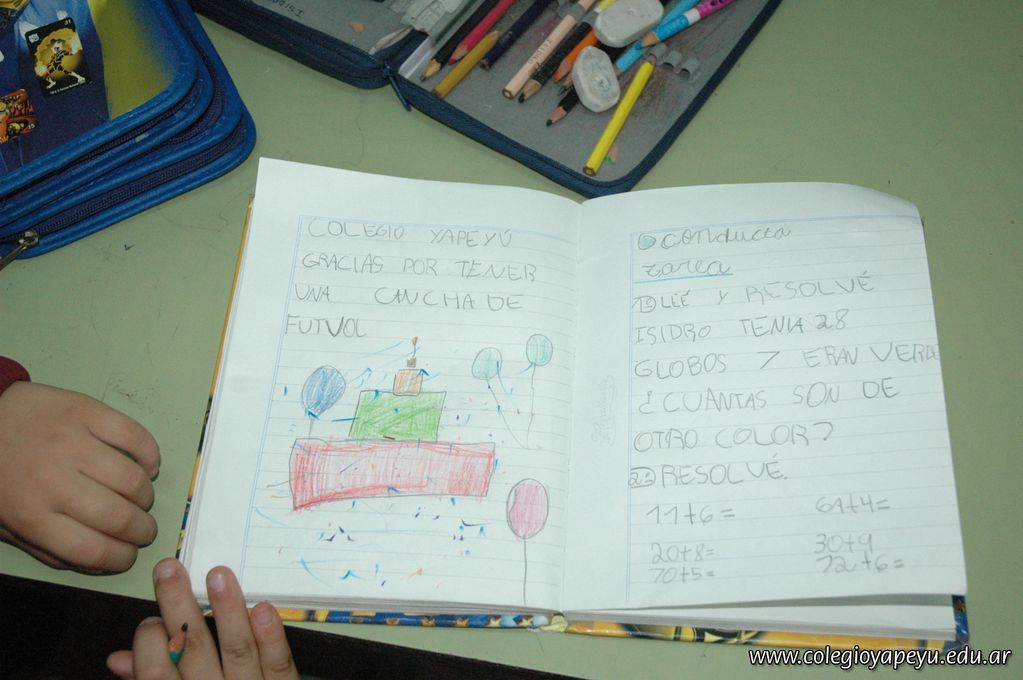 COLEGIO YAPEYÚ
GRACIAS POR TENER
UNA CANCHA DE
FUTVOL
conducta
tarea
1) LEÉ Y RESOLVÉ
ISIDRO TENIA 28
GLOBOS 7 ERAN VERDE
¿CUANTAS SON DE
OTRO COLOR?
2) RESOLVÉ.
11+6= 61+4=
20+8= 30+9
70+5= 72+6=
www.colegioyapeyu.edu.ar